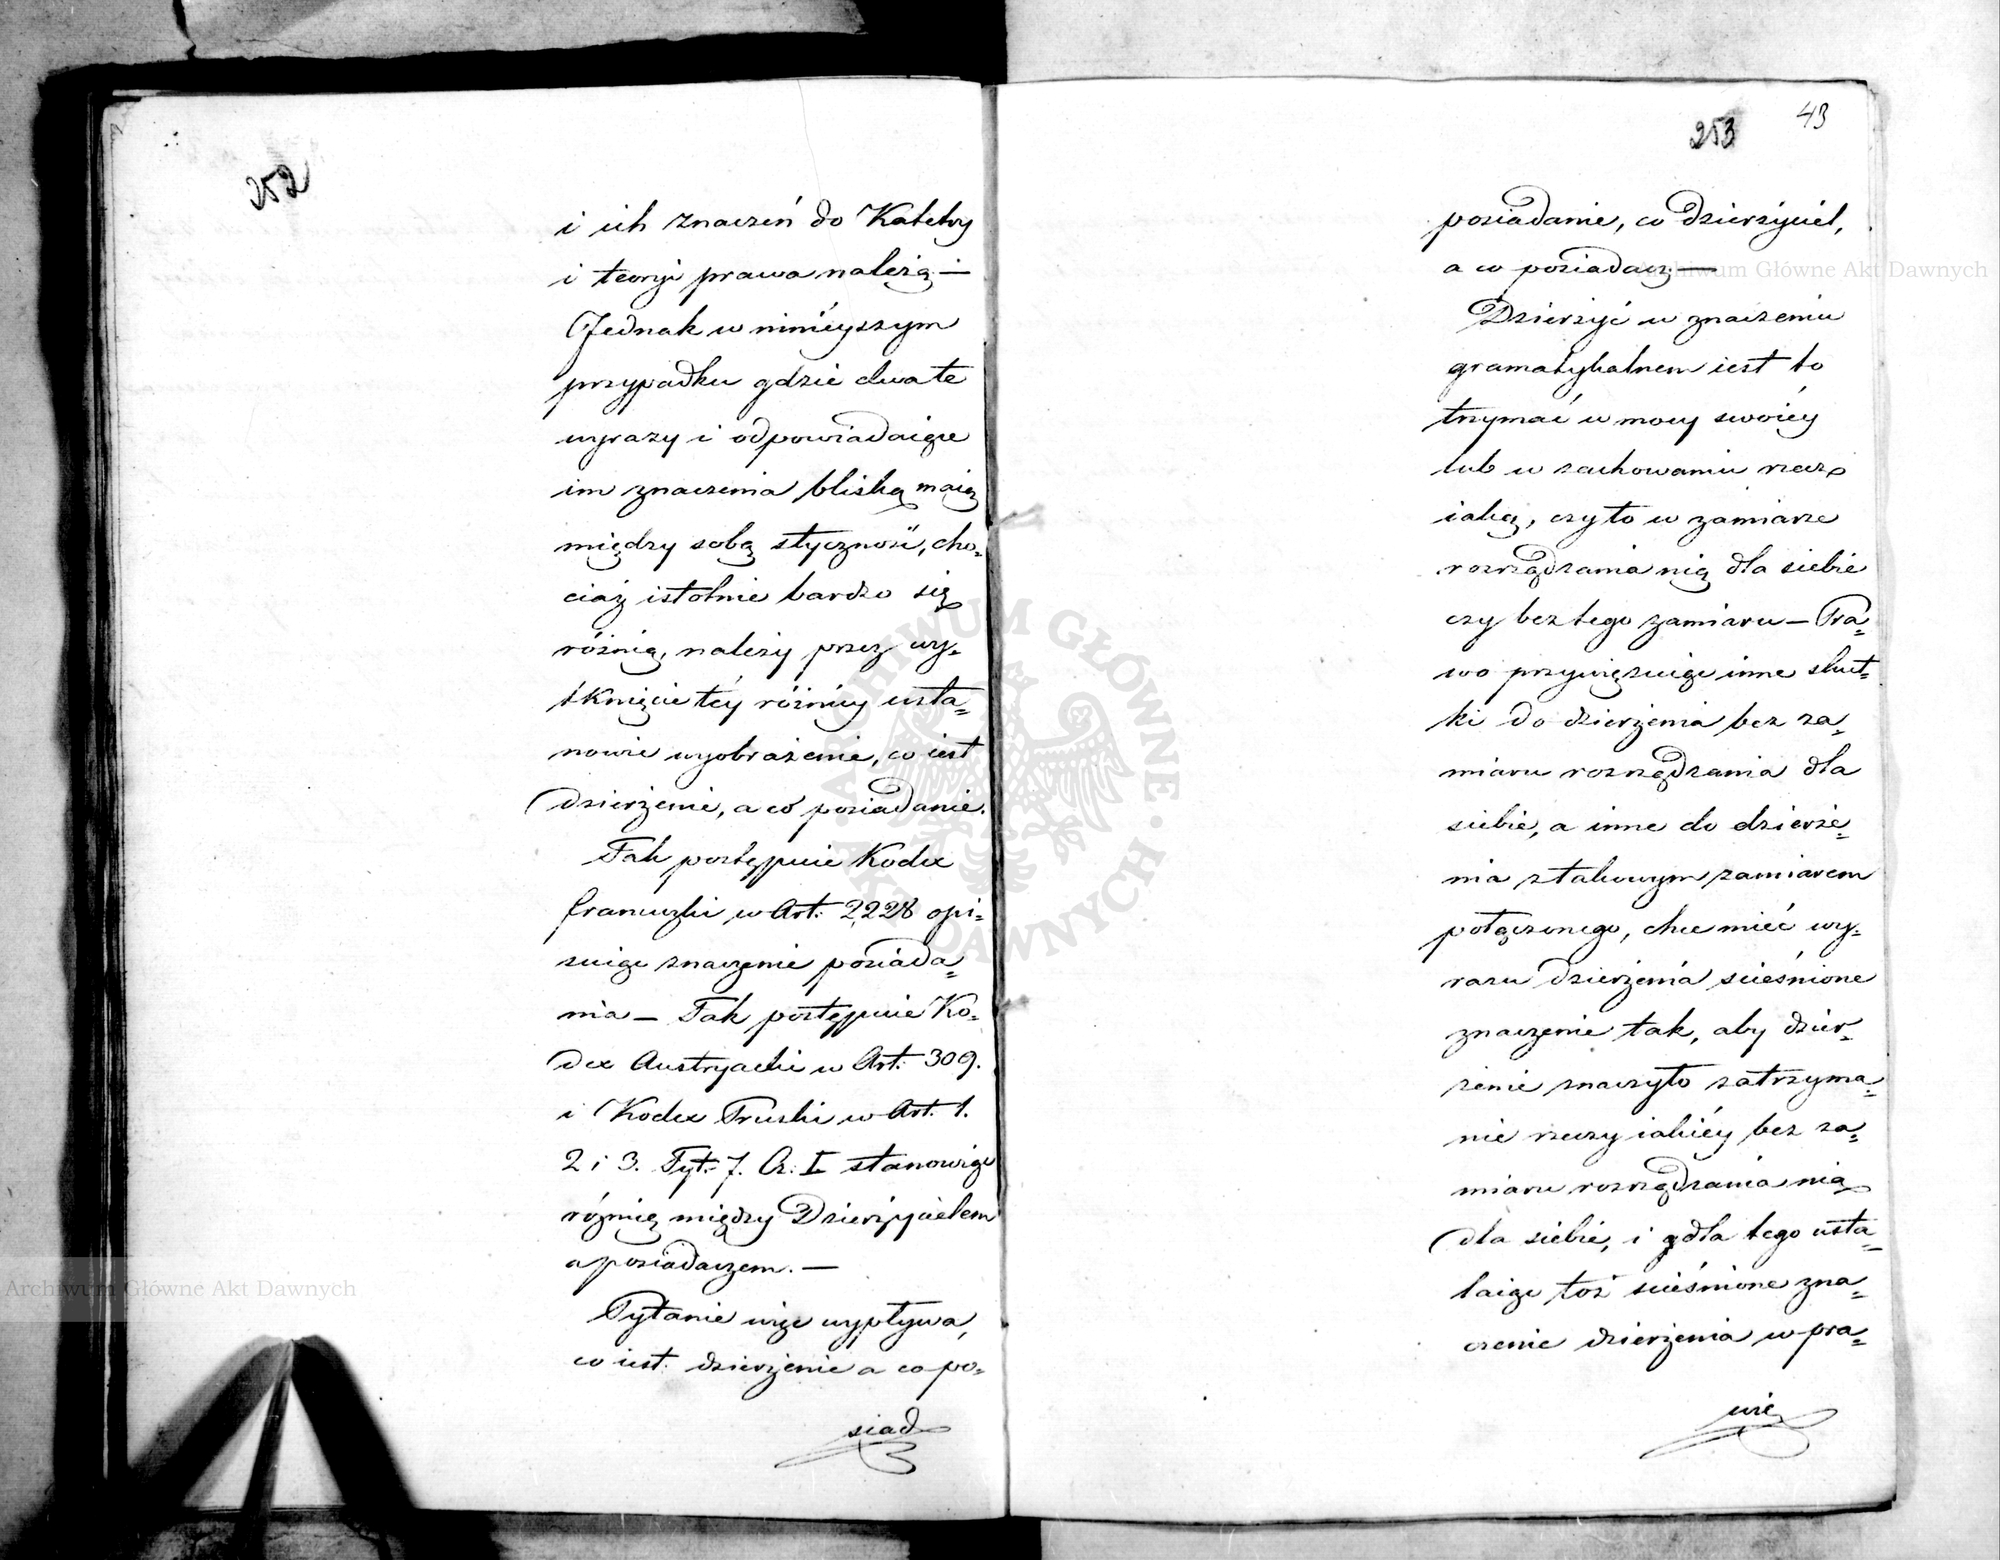 252
i ich znaczeń do Katedry
i teoryi prawa należą —
Jednak w ninieyszym
przypadku gdzie dwa te
wyrazy i odpowiadaiące
im znaczenia bliską maią
między sobą styczność, cho=
ciaż istotnie bardzo się
różnią, należy przez wy=
tknięcie téy różnicy usta=
nowić wyobrażenie, co iest
dzierżenie, a co posiadanie.
Tak postępuie Kodex
francuzki w Art: 2228 opi=
suiąc znaczenie posiada=
nia — Tak postępuie Ko=
dex Austryacki w Art: 309.
i Kodex Pruski w Art. 1.
2 i 3. Tyt: 7. Cz: I stanowiąc
różnicę między Dzierżycielem
a posiadaczem. —
Pytanie więc wypływa,
co iest dzierżenie a co po=
siad
43
253
posiadanie, co dzierżyciel,
a co posiadacz —
Dzierżyć w znaczeniu
gramatykalnem iest to
trzymać w mocy swoiéy
lub w zachowaniu rzecz
iaką, czy to w zamiarze
rozrządzania nią dla siebie
czy bez tego zamiaru — Pra=
wo przywięzuiąc inne skut=
ki do dzierżenia bez za=
miaru rozrządzania dla
siebie, a inne do dzierże=
nia z takowym zamiarem
połączonego, chce mieć wy=
razu dzierżenia ścieśnione
znaczenie tak, aby dzier=
żenie znaczyło zatrzyma=
nie rzeczy iakiéy bez za=
miaru rozrządzania nią
dla siebie, i dla tego usta=
laiąc toż ścieśnione zna=
czenie dzierżenia w pra=
wie
Archiwum Główne Akt Dawnych
Archiwum Główne Akt Dawnych
ARCHIWUM GŁÓWNE AKT DAWNYCH